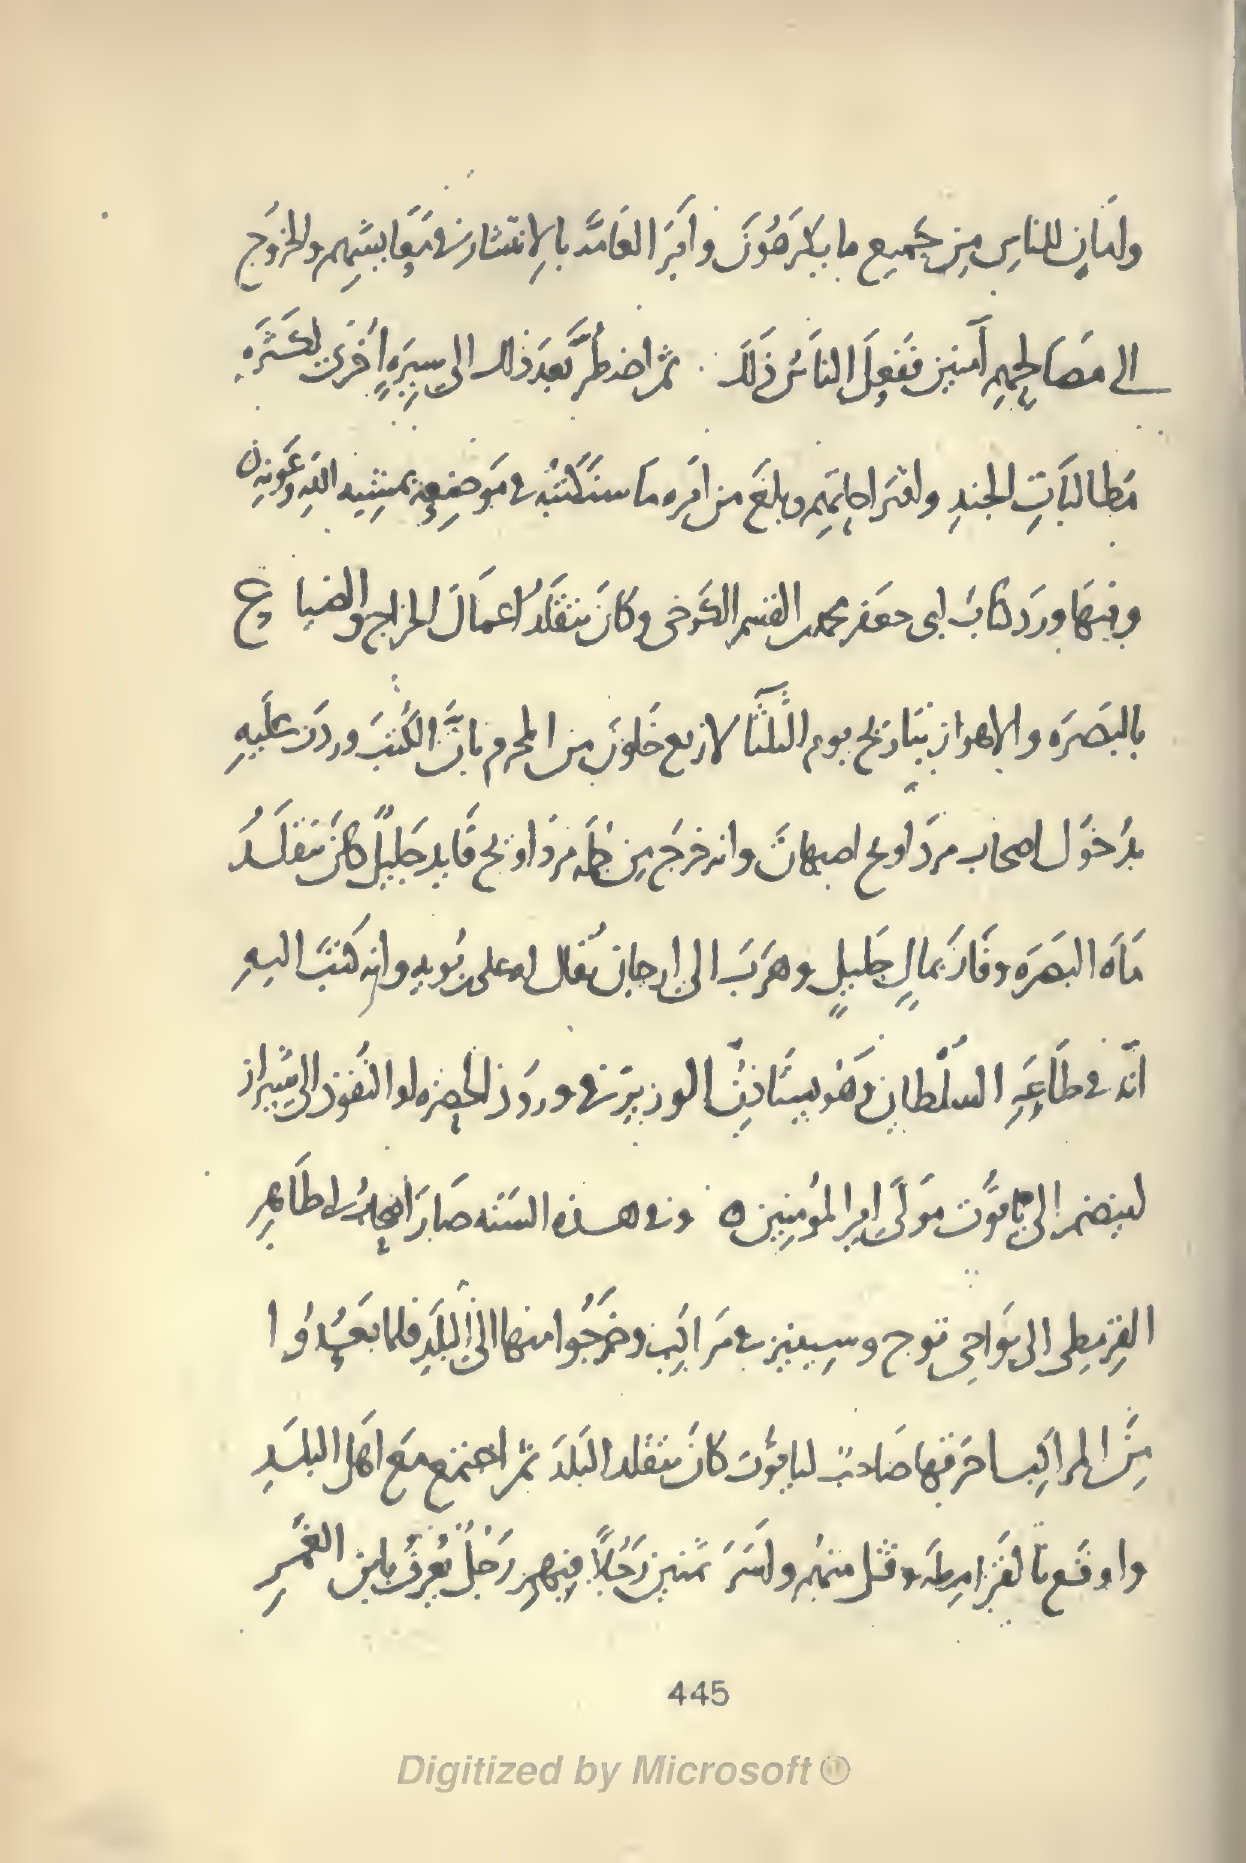 وامان للناس من جميع ما يكرهون وامر العامة بالانتشار في معايشهم والخروج
الى مصالحهم آمنين ففعل الناس ذلك . ثم اضطر بعد ذلك الى سيرة اخرى لكثره
مطالبات الجند واقتراحاتهم وبلغ من امره ما سنكتبه في موضعه بمشيه الله وعونه
وفيها ورد كتاب ابى جعفر محمد بن القسم الكرخى وكان يتقلد اعمال الخراج والضياع
بالبصره والاهواز بتاريخ يوم الثلثا لاربع خلون من المحرم بان الكتب وردت عليه
بدخول اصحاب مرداويج اصبهان وانه خرج من جمله مرداويج قايد جليل كان يتقلد
ماه البصره وفاز بمال جليل وهرب الى ارجان يقال له على بن بويه وانه كتب اليه
انه في طاعه السلطان وهو يستاذن الوزير في ورود الحضره او النفوذ الى شيراز
لينضم الى ياقوت مولى امير المومنين ه وفي هذه السنه صار اصحاب ابى طاهر
القرمطى الى نواحى توج وسينيز في مراكب وخرجوا منها الى البلد فلما بعدوا
من المراكب احرقها صاحب لياقوت كان يتقلد البلد ثم اجتمع مع اهل البلد
واوقع بالقرامطه وقتل منهم واسر ثمنين رجلا فيهم رجل يعرف بابن الغمر
445
Digitized by Microsoft ®